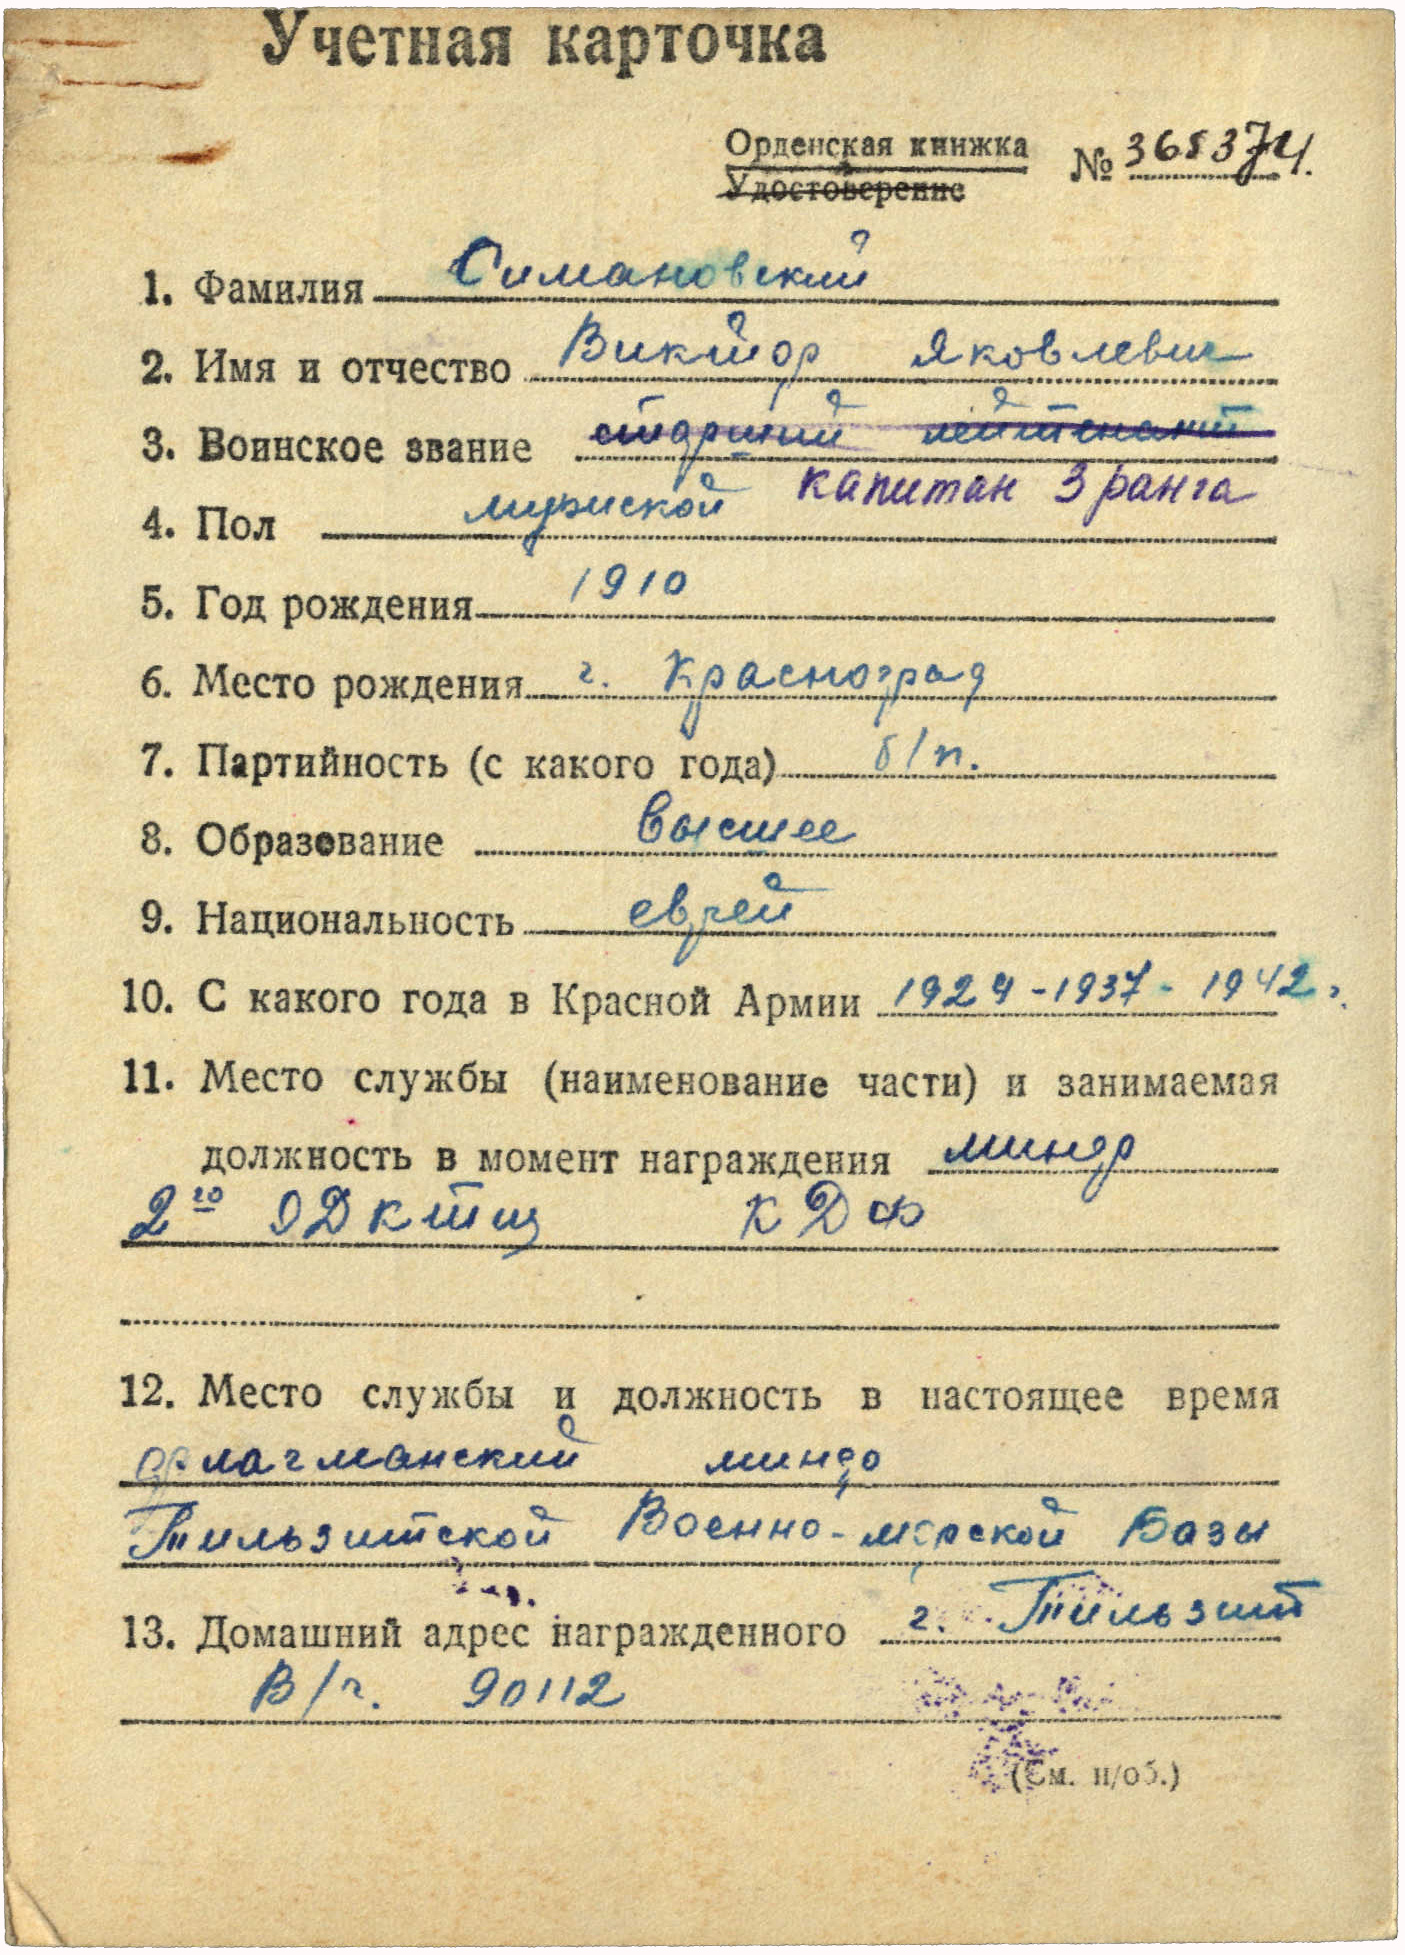 Учетная карточка
Орденская книжка № 365374
Удостоверение
1. Фамилия Симановский
2. Имя и отчество Виктор Яковлевич
3. Воинское звание старший лейтенант
капитан 3 ранга
4. Пол мужской
5. Год рождения 1910
6. Место рождения г. Красноград
7. Партийность (с какого года) б/п.
8. Образование высшее
9. Национальность еврей
10. С какого года в Красной Армии 1929-1937-1942 г.
11. Место службы (наименование части) и занимаемая
должность в момент награждения минер
2го ОДКТЩ КДФ
12. Место службы и должность в настоящее время
флагманский минер
Тильзитской Военно-морской Базы
13. Домашний адрес награжденного г. Тильзит
В/ч. 90112
(См. н/об.)